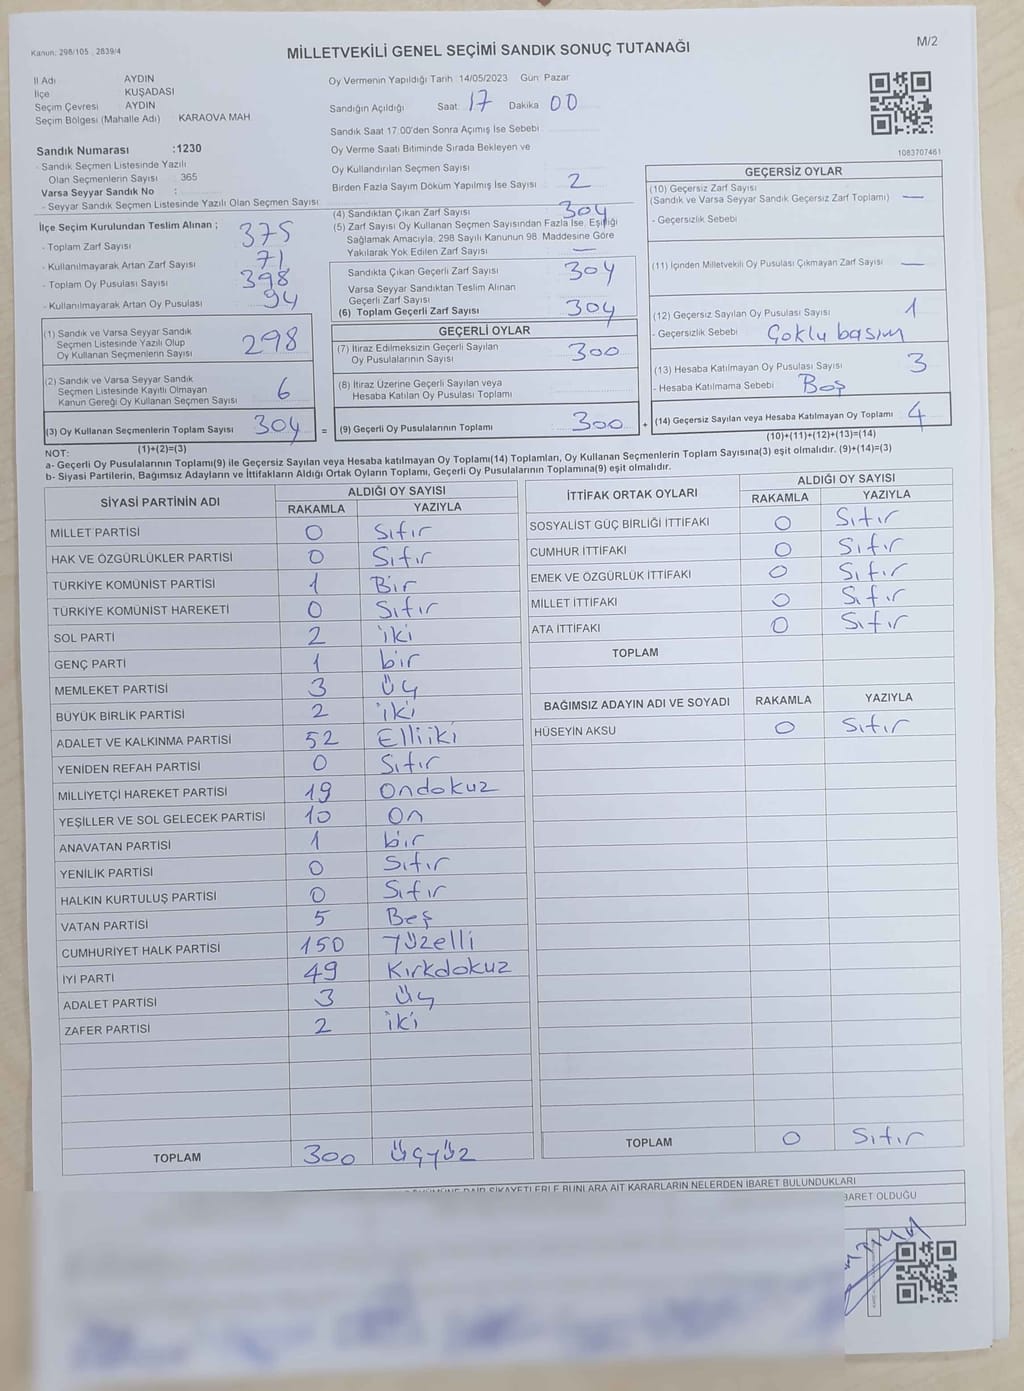 Kanun: 298/105 , 2839/4
MİLLETVEKİLİ GENEL SEÇİMİ SANDIK SONUÇ TUTANAĞI
M/2
İl Adı AYDIN
İlçe KUŞADASI
Seçim Çevresi AYDIN
Seçim Bölgesi (Mahalle Adı) KARAOVA MAH.
Sandık Numarası :1230
- Sandık Seçmen Listesinde Yazılı
Olan Seçmenlerin Sayısı : 365
Varsa Seyyar Sandık No :
- Seyyar Sandık Seçmen Listesinde Yazılı Olan Seçmen Sayısı
Oy Vermenin Yapıldığı Tarih: 14/05/2023 Gün: Pazar
Sandığın Açıldığı Saat: 17 Dakika: 00
Sandık Saat 17:00'den Sonra Açılmış İse Sebebi
Oy Verme Saati Bitiminde Sırada Bekleyen ve
Oy Kullandırılan Seçmen Sayısı
Birden Fazla Sayım Döküm Yapılmış İse Sayısı 2
1083707461
İlçe Seçim Kurulundan Teslim Alınan ;
- Toplam Zarf Sayısı 375
- Kullanılmayarak Artan Zarf Sayısı 71
- Toplam Oy Pusulası Sayısı 398
- Kullanılmayarak Artan Oy Pusulası 94
(1) Sandık ve Varsa Seyyar Sandık
Seçmen Listesinde Yazılı Olup
Oy Kullanan Seçmenlerin Sayısı 298
(2) Sandık ve Varsa Seyyar Sandık
Seçmen Listesinde Kayıtlı Olmayan
Kanun Gereği Oy Kullanan Seçmen Sayısı 6
(3) Oy Kullanan Seçmenlerin Toplam Sayısı 304 =
(4) Sandıktan Çıkan Zarf Sayısı 304
(5) Zarf Sayısı Oy Kullanan Seçmen Sayısından Fazla İse, Eşitliği
Sağlamak Amacıyla, 298 Sayılı Kanunun 98. Maddesine Göre
Yakılarak Yok Edilen Zarf Sayısı —
Sandıkta Çıkan Geçerli Zarf Sayısı 304
Varsa Seyyar Sandıktan Teslim Alınan
Geçerli Zarf Sayısı
(6) Toplam Geçerli Zarf Sayısı 304
GEÇERLİ OYLAR
(7) İtiraz Edilmeksizin Geçerli Sayılan
Oy Pusulalarının Sayısı 300
(8) İtiraz Üzerine Geçerli Sayılan veya
Hesaba Katılan Oy Pusulası Toplamı
(9) Geçerli Oy Pusulalarının Toplamı 300 +
GEÇERSİZ OYLAR
(10) Geçersiz Zarf Sayısı
(Sandık ve Varsa Seyyar Sandık Geçersiz Zarf Toplamı) —
- Geçersizlik Sebebi
(11) İçinden Milletvekili Oy Pusulası Çıkmayan Zarf Sayısı —
(12) Geçersiz Sayılan Oy Pusulası Sayısı 1
- Geçersizlik Sebebi Çoklu basım
(13) Hesaba Katılmayan Oy Pusulası Sayısı 3
- Hesaba Katılmama Sebebi Boş
(14) Geçersiz Sayılan veya Hesaba Katılmayan Oy Toplamı 4
NOT: (1)+(2)=(3)
(10)+(11)+(12)+(13)=(14)
a- Geçerli Oy Pusulalarının Toplamı(9) ile Geçersiz Sayılan veya Hesaba katılmayan Oy Toplamı(14) Toplamları, Oy Kullanan Seçmenlerin Toplam Sayısına(3) eşit olmalıdır. (9)+(14)=(3)
b- Siyasi Partilerin, Bağımsız Adayların ve İttifakların Aldığı Ortak Oyların Toplamı, Geçerli Oy Pusulalarının Toplamına(9) eşit olmalıdır.
SİYASİ PARTİNİN ADI ALDIĞI OY SAYISI
RAKAMLA YAZIYLA
MİLLET PARTİSİ 0 Sıfır
HAK VE ÖZGÜRLÜKLER PARTİSİ 0 Sıfır
TÜRKİYE KOMÜNİST PARTİSİ 1 Bir
TÜRKİYE KOMÜNİST HAREKETİ 0 Sıfır
SOL PARTİ 2 iki
GENÇ PARTİ 1 bir
MEMLEKET PARTİSİ 3 Üç
BÜYÜK BİRLİK PARTİSİ 2 iki
ADALET VE KALKINMA PARTİSİ 52 Elliiki
YENİDEN REFAH PARTİSİ 0 Sıfır
MİLLİYETÇİ HAREKET PARTİSİ 19 Ondokuz
YEŞİLLER VE SOL GELECEK PARTİSİ 10 On
ANAVATAN PARTİSİ 1 bir
YENİLİK PARTİSİ 0 Sıfır
HALKIN KURTULUŞ PARTİSİ 0 Sıfır
VATAN PARTİSİ 5 Beş
CUMHURİYET HALK PARTİSİ 150 Yüzelli
İYİ PARTİ 49 Kırkdokuz
ADALET PARTİSİ 3 Üç
ZAFER PARTİSİ 2 iki
TOPLAM 300 Üçyüz
İTTİFAK ORTAK OYLARI ALDIĞI OY SAYISI
RAKAMLA YAZIYLA
SOSYALİST GÜÇ BİRLİĞİ İTTİFAKI 0 Sıfır
CUMHUR İTTİFAKI 0 Sıfır
EMEK VE ÖZGÜRLÜK İTTİFAKI 0 Sıfır
MİLLET İTTİFAKI 0 Sıfır
ATA İTTİFAKI 0 Sıfır
TOPLAM
BAĞIMSIZ ADAYIN ADI VE SOYADI RAKAMLA YAZIYLA
HÜSEYİN AKSU 0 Sıfır
TOPLAM 0 Sıfır
DAİR ŞİKAYETLERLE BUNLARA AİT KARARLARIN NELERDEN İBARET BULUNDUKLARI
OLDUĞU